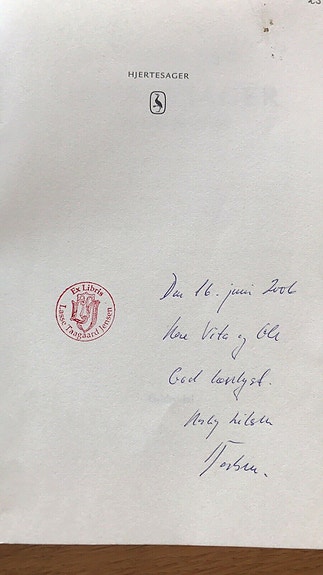 HJERTESAGER
Ex Libris
Lasse Taagaard Jensen
Den 16. juni 2006
Kære Vita og Ole
God læselyst.
Kærlig hilsen